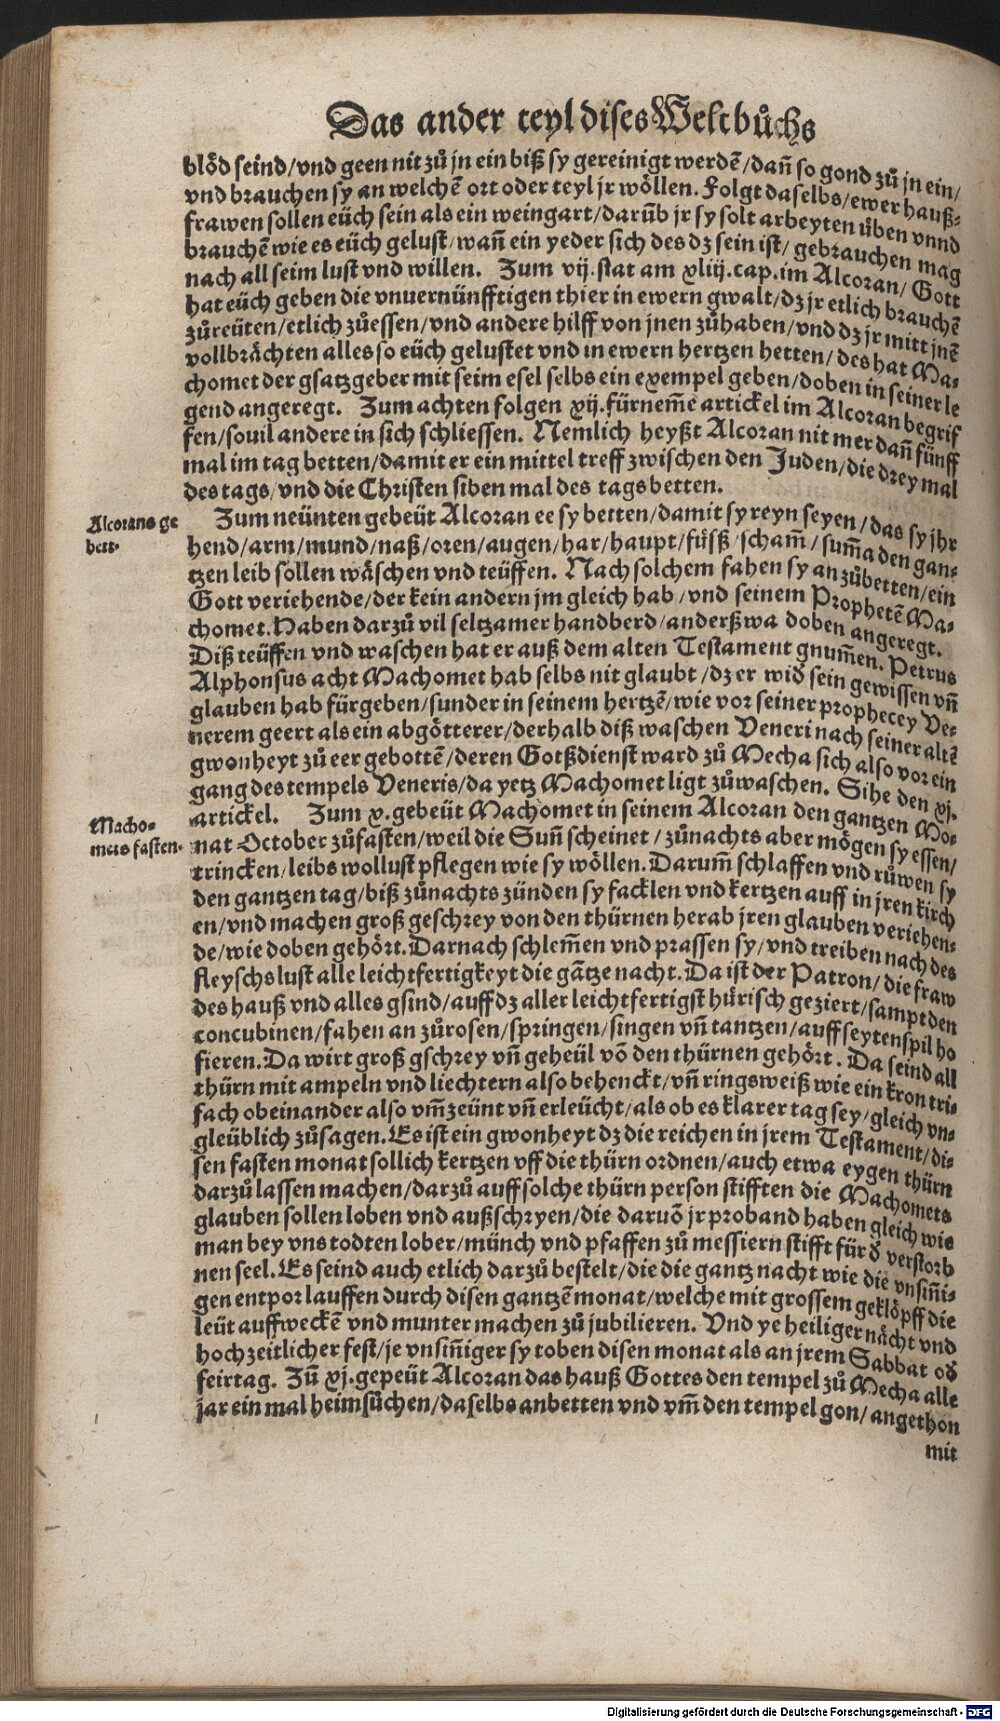 Das ander teyl dises Weltbůchs
blöd seind/vnd geen nit zů jn ein biß sy gereinigt werdē/dañ so gond zů jn ein/
vnd brauchen sy an welchē ort oder teyl jr wöllen. Folgt daselbs/ewer hauß-
frawen sollen eüch sein als ein weingart/darūb jr sy solt arbeyten üben vnnd
brauchē wie es eüch gelust/wañ ein yeder sich des dz sein ist/gebrauchen mag
nach all seim lust vnd willen. Zum vij.stat am xliij.cap.im Alcoran/Gott
hat eüch geben die vnuernünfftigen thier in ewern gwalt/dz jr etlich brauchē
zůreüten/etlich zůessen/vnd andere hilff von jnen zůhaben/vnd dz jr mitt jnē
vollbrächten alles so eüch gelustet vnd in ewern hertzen hetten/des hat Ma-
chomet der gsatzgeber mit seim esel selbs ein exempel geben/doben in seiner le
gend angeregt. Zum achten folgen xij.fürnem̄e artickel im Alcoran begrif
fen/souil andere in sich schliessen. Nemlich heyßt Alcoran nit mer dañ fünff
mal im tag betten/damit er ein mittel treff zwischen den Juden/die drey mal
des tags/vnd die Christen siben mal des tags betten.
Alcorans ge
bett.
Zum neünten gebeüt Alcoran ee sy betten/damit sy reyn seyen/das sy jhr
hend/arm/mund/naß/oren/augen/har/haupt/füsß/scham̄/sum̄a den gan-
tzen leib sollen wäschen vnd teüffen. Nach solchem fahen sy an zůbetten/ein
Gott veriehende/der kein andern jm gleich hab/vnd seinem Prophetē Ma-
chomet. Haben darzů vil seltzamer handberd/anderßwa doben angeregt.
Diß teüffen vnd waschen hat er auß dem alten Testament gnum̄en. Petrus
Alphonsus acht Machomet hab selbs nit glaubt/dz er wid̄ sein gewissen vñ
glauben hab fürgeben/sunder in seinem hertzē/wie vor seiner prophecey Ve-
nerem geert als ein abgötterer/derhalb diß waschen Veneri nach seiner altē
gwonheyt zů eer gebottē/deren Gotßdienst ward zů Mecha sich also vor ein
gang des tempels Veneris/da yetz Machomet ligt zůwaschen. Sihe den xj.
artickel. Zum x.gebeüt Machomet in seinem Alcoran den gantzen Mo-
Macho-
mets fasten.
nat October zůfasten/weil die Suñ scheinet/zůnachts aber mögen sy essen/
trincken/leibs wollust pflegen wie sy wöllen. Darum̄ schlaffen vnd růwen sy
den gantzen tag/biß zůnachts zünden sy facklen vnd kertzen auff in jren kirch
en/vnd machen groß geschrey von den thürnen herab jren glauben veriehen-
de/wie doben gehört. Darnach schlem̄en vnd prassen sy/vnd treiben nach des
fleyschs lust alle leichtfertigkeyt die gātze nacht. Da ist der Patron/die fraw
des hauß vnd alles gsind/auff dz aller leichtfertigst hürisch geziert/sampt den
concubinen/fahen an zůrosen/springen/singen vñ tantzen/auff seytenspil ho
fieren. Da wirt groß gschrey vñ geheül vō den thürnen gehört. Da seind all
thürn mit ampeln vnd liechtern also behenckt/vñ ringsweiß wie ein kron tri-
fach obeinander also vm̄zeünt vñ erleücht/als ob es klarer tag sey/gleich vn-
gleüblich zůsagen. Es ist ein gwonheyt dz die reichen in jrem Testament/di-
sen fasten monat sollich kertzen vff die thürn ordnen/auch etwa eygen thürn
darzů lassen machen/darzů auff solche thürn person stifften die Machomets
glauben sollen loben vnd außschryen/die daruō jr proband haben gleich wie
man bey vns todten lober/münch vnd pfaffen zů messiern stifft für d̄ verstorb
nen seel. Es seind auch etlich darzů bestelt/die die gantz nacht wie die vnsiñi-
gen entpor lauffen durch disen gantzē monat/welche mit grossem geklöpff die
leüt auffweckē vnd munter machen zů jubilieren. Vnd ye heiliger nächt vnd
hochzeitlicher fest/je vnsiñiger sy toben disen monat als an jrem Sabbat od̄
feirtag. Zū xj.gepeüt Alcoran das hauß Gottes den tempel zů Mecha alle
jar ein mal heimsůchen/daselbs anbetten vnd vm̄ den tempel gon/angethon
mit
Digitalisierung gefördert durch die Deutsche Forschungsgemeinschaft - DFG